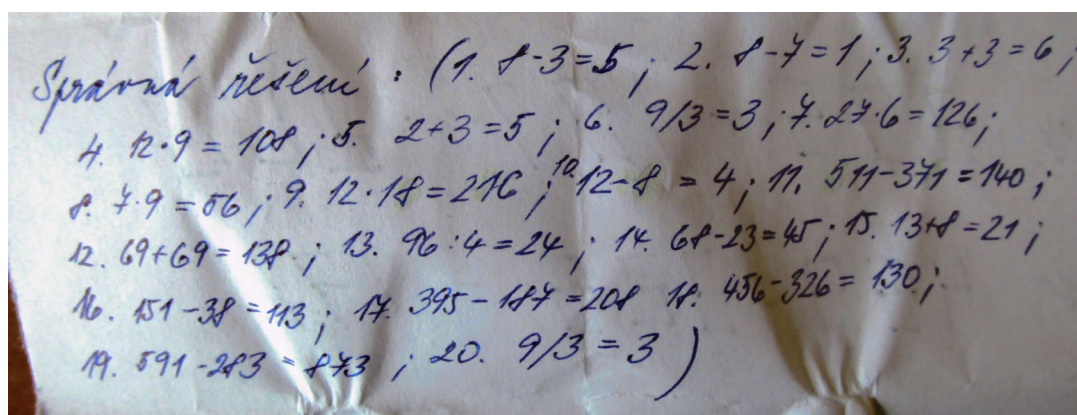 Správná řešení : (1. 8-3=5 ; 2. 8-7=1 ; 3. 3+3=6 ;
4. 12·9 = 108 ; 5. 2+3=5 ; 6. 9/3=3 ; 7. 27·6=126 ;
8. 7·9=56 ; 9. 12·18=216 ; 10. 12-8 = 4 ; 11. 511-371=140 ;
12. 69+69=138 ; 13. 96:4=24 ; 14. 68-23=45 ; 15. 13+8=21 ;
16. 151-38=113 ; 17. 395-187=208 18. 456-326=130 ;
19. 591-283=873 ; 20. 9/3=3 )